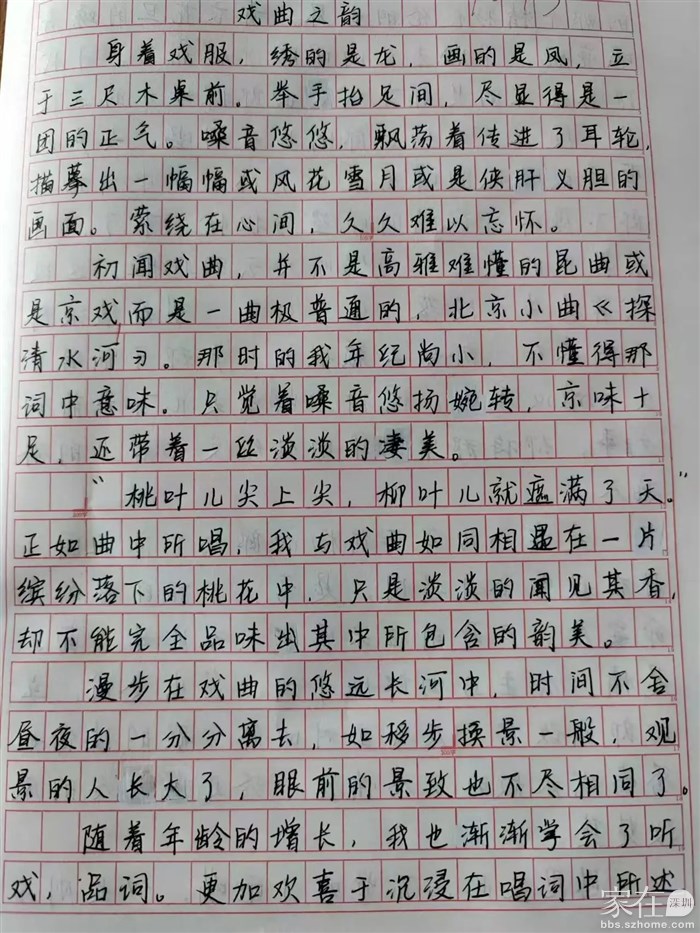 戏曲之韵
身着戏服，绣的是龙，画的是凤，立
于三尺木桌前。举手抬足间，尽显得是一
团的正气。嗓音悠悠，飘荡着传进了耳轮，
描摹出一幅幅或风花雪月或是侠肝义胆的
画面。萦绕在心间，久久难以忘怀。
初闻戏曲，并不是高雅难懂的昆曲或
是京戏而是一曲极普通的，北京小曲《探
清水河》。那时的我年纪尚小，不懂得那
词中意味。只觉着嗓音悠扬婉转，京味十
足，还带着一丝淡淡的凄美。
“桃叶儿尖上尖，柳叶儿就遮满了天。”
正如曲中所唱，我与戏曲如同相遇在一片
缤纷落下的桃花中，只是淡淡的闻见其香，
却不能完全品味出其中所包含的韵美。
漫步在戏曲的悠远长河中，时间不舍
昼夜的一分分离去，如移步换景一般，观
景的人长大了，眼前的景致也不尽相同了。
随着年龄的增长，我也渐渐学会了听
戏，品词。更加欢喜于沉浸在唱词中所述
家在深圳
bbs.szhome.com